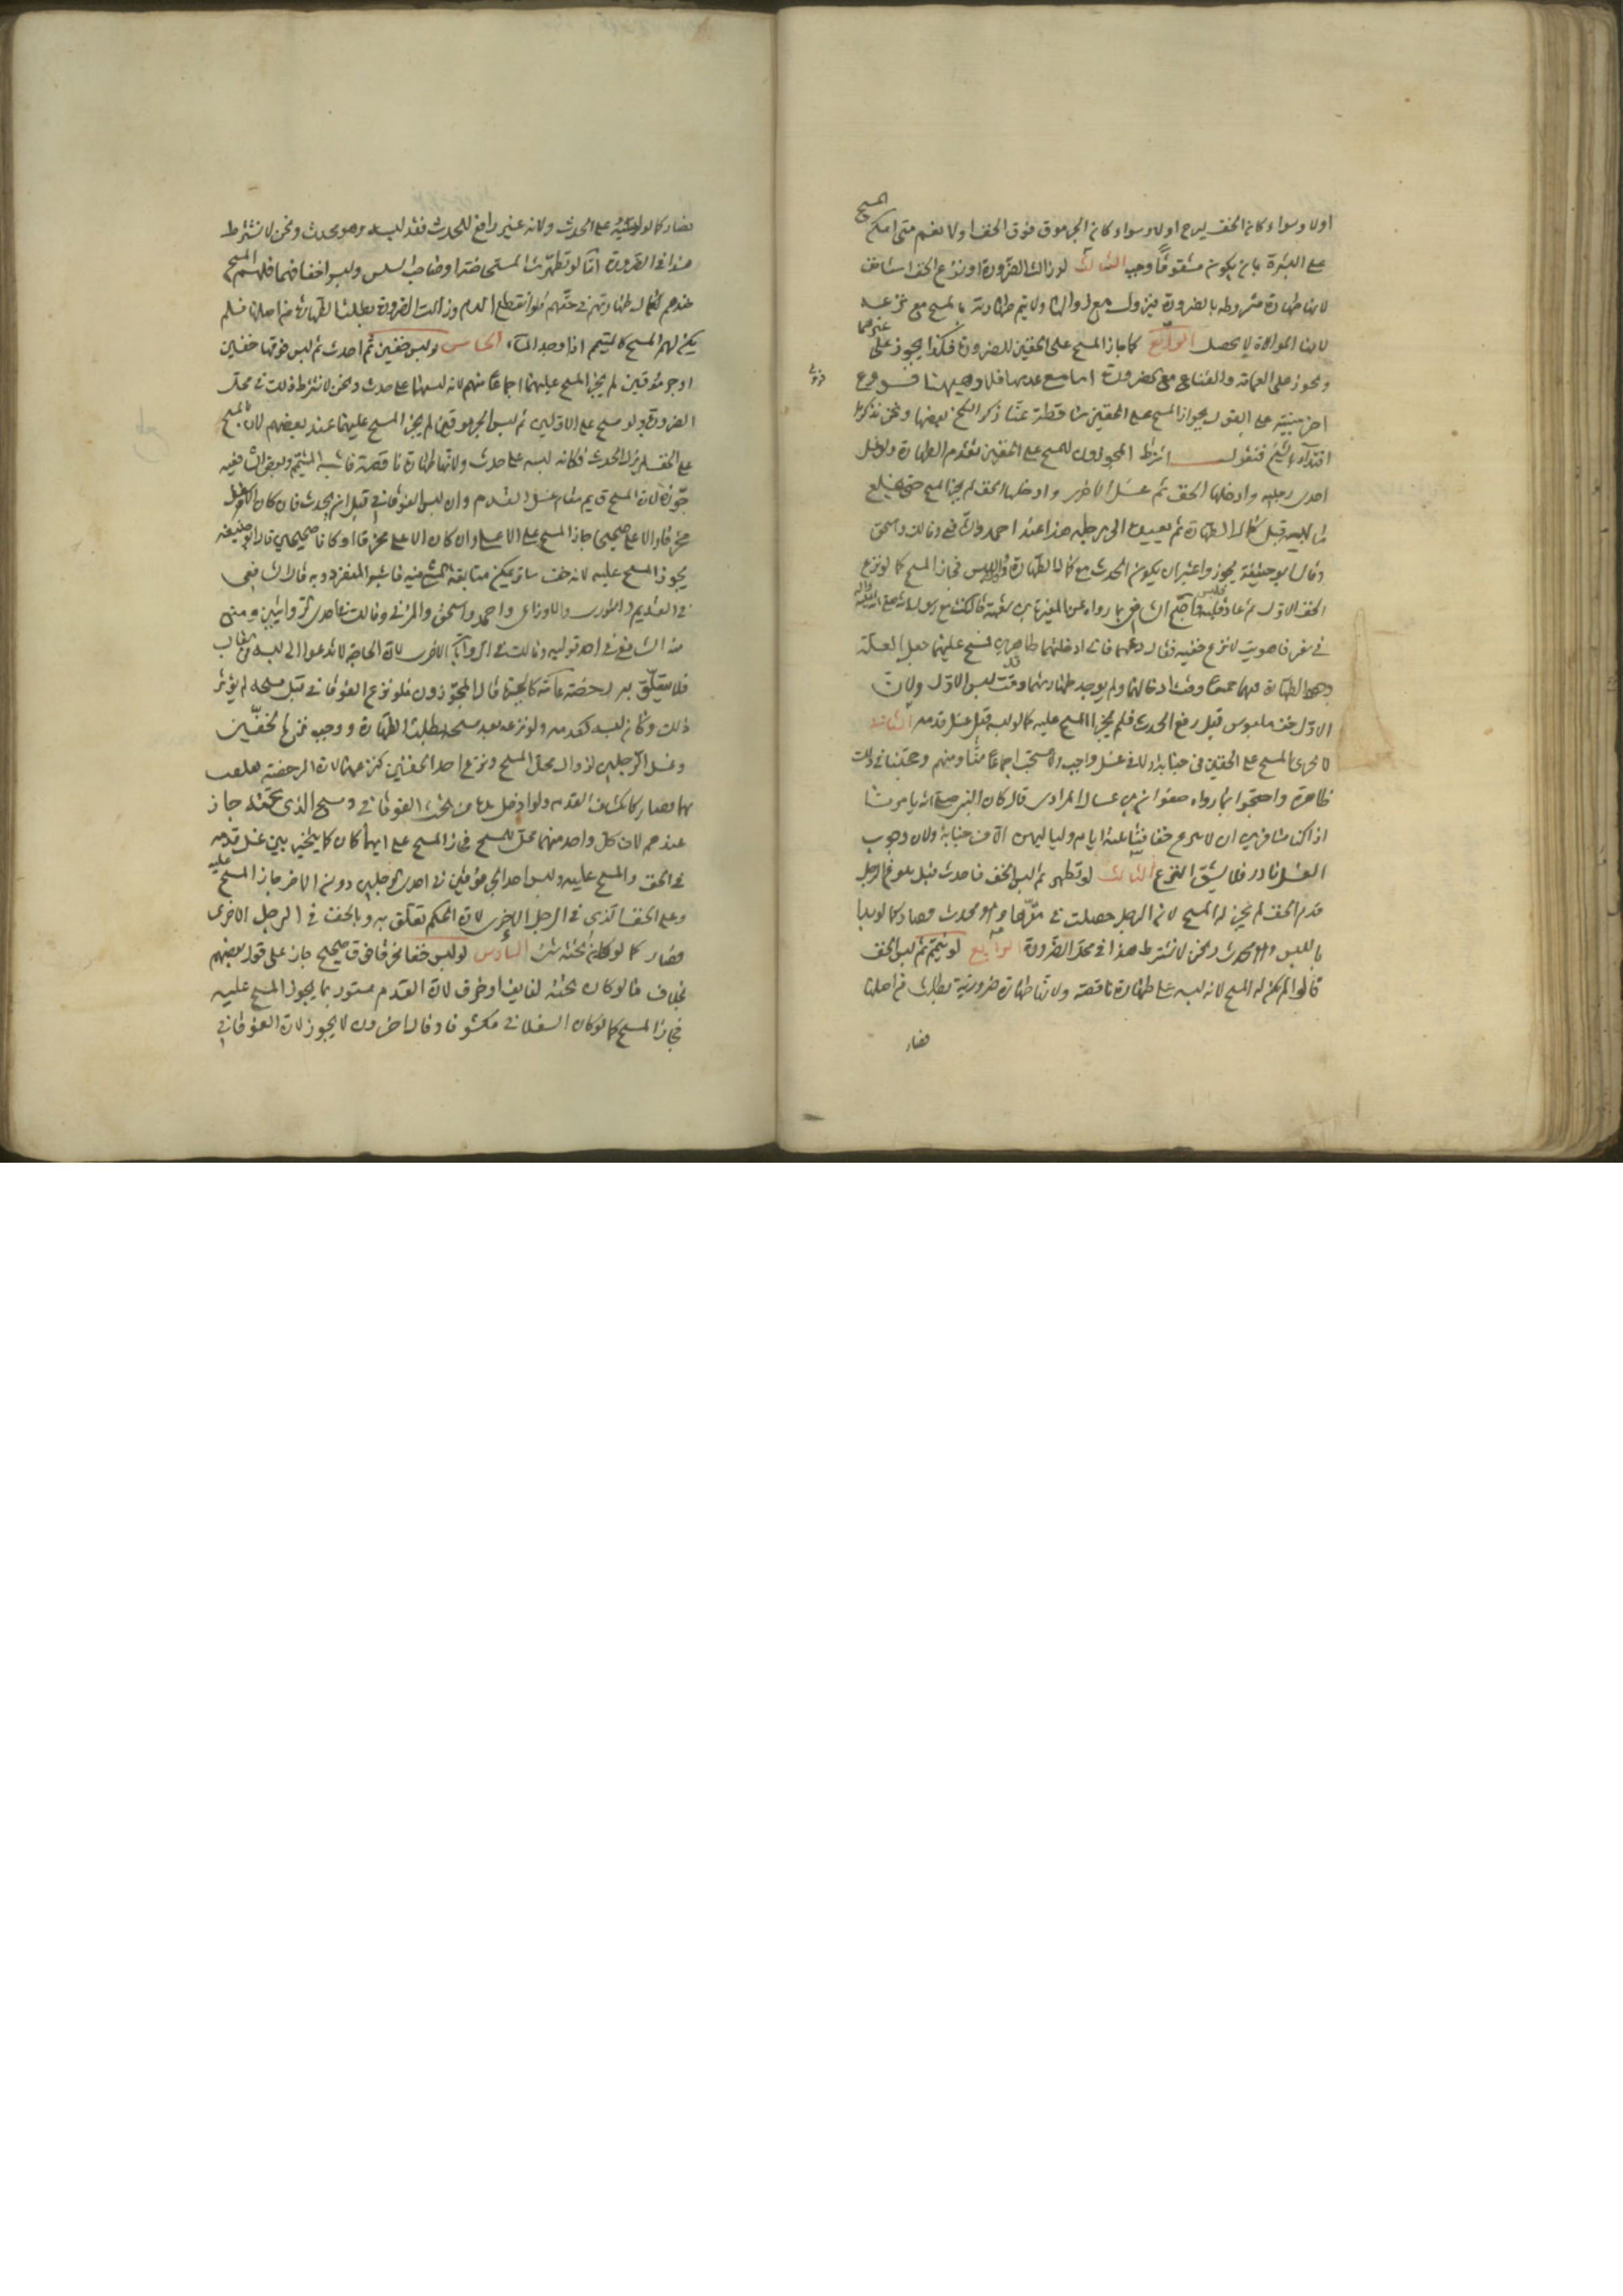 المسح
اولا وسواء كان الخف يدخ اولا وسواء كان الجرموق فوق الخف اولا نعم متى امكن
على البشرة بان يكون مشقوقا وجب الثالث لو زالت الضرورة او نزع الخف استانف
لانها طهارة مشروطة بالضرورة فيزول مع زوالها ولا يتم طهارته بالمسح مع نزعه
لان الموالاة لا تحصل الرابع كما جاز المسح على الخفين للضرورة فكذا يجوز على غيرهما
ويجوز على العمامة والقناع مع الضرورة اما مع عدمها فلا وهيهنا فروع
اخر مبنية على القول بجواز المسح على الخفين ساقطة عنا ذكر الشيخ بعضها ونحن نذكرها
اقتداء بالشيخ فنقول اشترط المجوزون للمسح على الخفين تقدم الطهارة ولو غسل
احدى رجليه وادخلها الخف ثم غسل الاخرى وادخلها الخف لم يجز المسح حتى يخلع
ما لبسه قبل كمال الطهارة ثم يعيده الى رجله هذا عند احمد والشافعي ومالك واسحق
وقال ابو حنيفة يجوز واعتبر ان يكون الحدث مع كمال الطهارة واللبس فجاز المسح كما لو نزع
الخف الاول ثم عاد فلبسه واحتج الشافعي بما رواه عن المغيرة بن شعبة قال كنت مع رسول الله صلى الله عليه واله
في سفر فاهويت لانزع خفيه فقال دعهما فاني ادخلتهما طاهرتين فمسح عليهما جعل العلة
وجود الطهارة فيهما جميعا وقت ادخالهما ولم يوجد طهارتهما وقت لبس الاول ولان
الاول خف ملبوس قبل رفع الحدث فلم يجز المسح عليه كما لو لبسه قبل غسل قدميه الثاني
لا يجزي المسح على الخفين في جنابة ولا في غسل واجب ولا مستحب اجماعا منا ومنهم وحجتنا في ذلك
ظاهرة واحتجوا بما رواه صفوان بن عسال المرادي قال كان النبي صلى الله يامرنا
اذا كنا مسافرين ان لا ننزع خفافنا ثلثة ايام ولياليهن الا من جنابة ولان وجوب
الغسل نادر فلا يشق النزع الثالث لو تطهر ثم لبس الخف فاحدث قبل بلوغ الرجل
قدم الخف لم يجز له المسح لان الرجل حصلت في مقرها وهو محدث فصار كما لو بدا
باللبس وهو محدث ونحن لا نشترط هذا في محل الضرورة الرابع لو تيمم ثم لبس الخف
قالوا لم يكن له المسح لانه لبسه على طهارة ناقصة ولانها طهارة ضرورية بطلت من اصلها
فصار
فصار كما لو لبسه على الحدث ولانه غير رافع للحدث فقد لبسه وهو محدث ونحن لا نشترط
هذا في الضرورة اما لو تطهرت المستحاضة او صاحب السلس ولبسوا خفافهما فلهم المسح
عندهم لكمال طهارتهم في حقهم فلو انقطع الدم وزالت الضرورة بطلت الطهارة من اصلها فلم
يكن لهم المسح كالمتيمم اذا وجد الماء الخامس لو لبس خفين ثم احدث ثم لبس فوقها خفين
او جرموقين لم يجز المسح عليهما اجماعا منهم لانه لبسهما على حدث ونحن لا نشترط ذلك في محل
الضرورة ولو مسح على الاولين ثم لبس الجرموقين لم يجز المسح عليهما عند بعضهم لان المسح
على الخف لم يزل الحدث فكانه لبسه على حدث ولانها طهارة ناقصة فاشبه المتيمم وبعض الشافعية
جوزه لان المسح قائم مقام غسل القدم وان لبس الفوقاني قبل ان يحدث فان كان الاسفل
مخرقا والاعلى صحيحا جاز المسح على الاعلى وان كان الاعلى مخرقا او كانا صحيحين قال ابو حنيفة
يجوز المسح عليه لانه خف ساتر يمكن متابقة المشي فيه فاشبه المنفرد وبه قال الشافعي
في القديم والثوري والاوزاعي واحمد واسحق والمزني ومالك في احدى الروايتين ومنع
منه الشافعي في احد قوليه ومالك في الرواية الاخرى لان الحاجة لا تدعوا الى لبسه في الغالب
فلا يتعلق به رخصة عامة كالجبيرة قال المجوزون فلو نزع الفوقاني قبل مسحه لم يؤثر
ذلك وكان لبسه كعدمه ولو نزعه بعد مسحه بطلت الطهارة ووجب نزع الخفين
وغسل الرجلين لزوال محل المسح ونزع احد الخفين كنزعهما لان الرخصة تعلقت
بهما فصار كانكشاف القدم ولو ادخل يده من تحت الفوقاني ومسح الذي تحته جاز
عندهم لان كل واحد منهما محل للمسح فجاز المسح على ايهما كان كما يتخير بين غسل قدمه
في الخف والمسح عليه ولو لبس احد الجرموقين في احدى الرجلين دون الاخر جاز المسح عليه
وعلى الخف الذي في الرجل الاخرى لان الحكم تعلق به وبالخف في الرجل الاخرى
فصار كما لو كان تحته شيء السادس لو لبس خفا مخرقا فوق صحيح جاز على قول بعضهم
بخلاف ما لو كان تحته لفايف او خرق لان القدم مستور بما يجوز المسح عليه
فجاز المسح كما لو كان السفلاني مكشوفا وقال اخرون لا يجوز لان الفوقاني